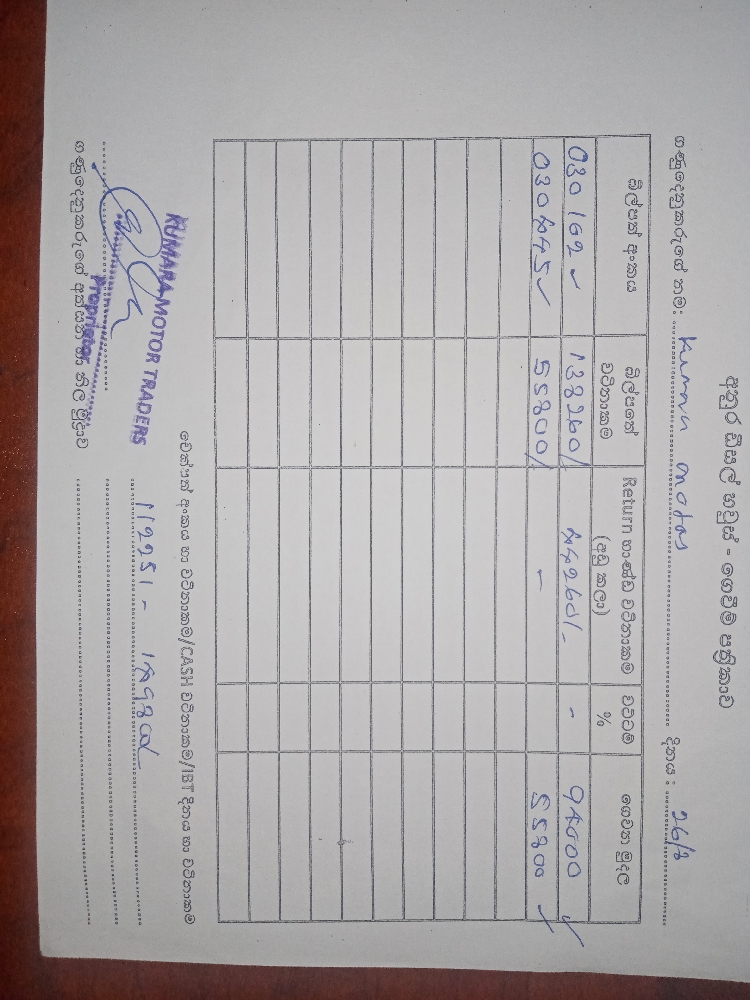 අතුර ඩීසල් හවුස් - ගෙවීම් පත්‍රිකාව
ගණුදෙනුකරුගේ නම: Kumara motors දිනය: 26/8
බිල්පත් අංකය බිල්පතේ වටිනාකම Return භාණ්ඩ වටිනාකම (අඩු කලා) වට්ටම % ගෙවන මුදල
030162 ✓ 138260/- 44260/- - 94000 ✓
030445 ✓ 55800/- - 55800 ✓
චෙක්පත් අංකය හා වටිනාකම/CASH වටිනාකම/IBT දිනය හා වටිනාකම
KUMARA MOTOR TRADERS
112251 - 149800/-
Proprietor
ගණුදෙනුකරුගේ අත්සන හා නිල මුද්‍රාව